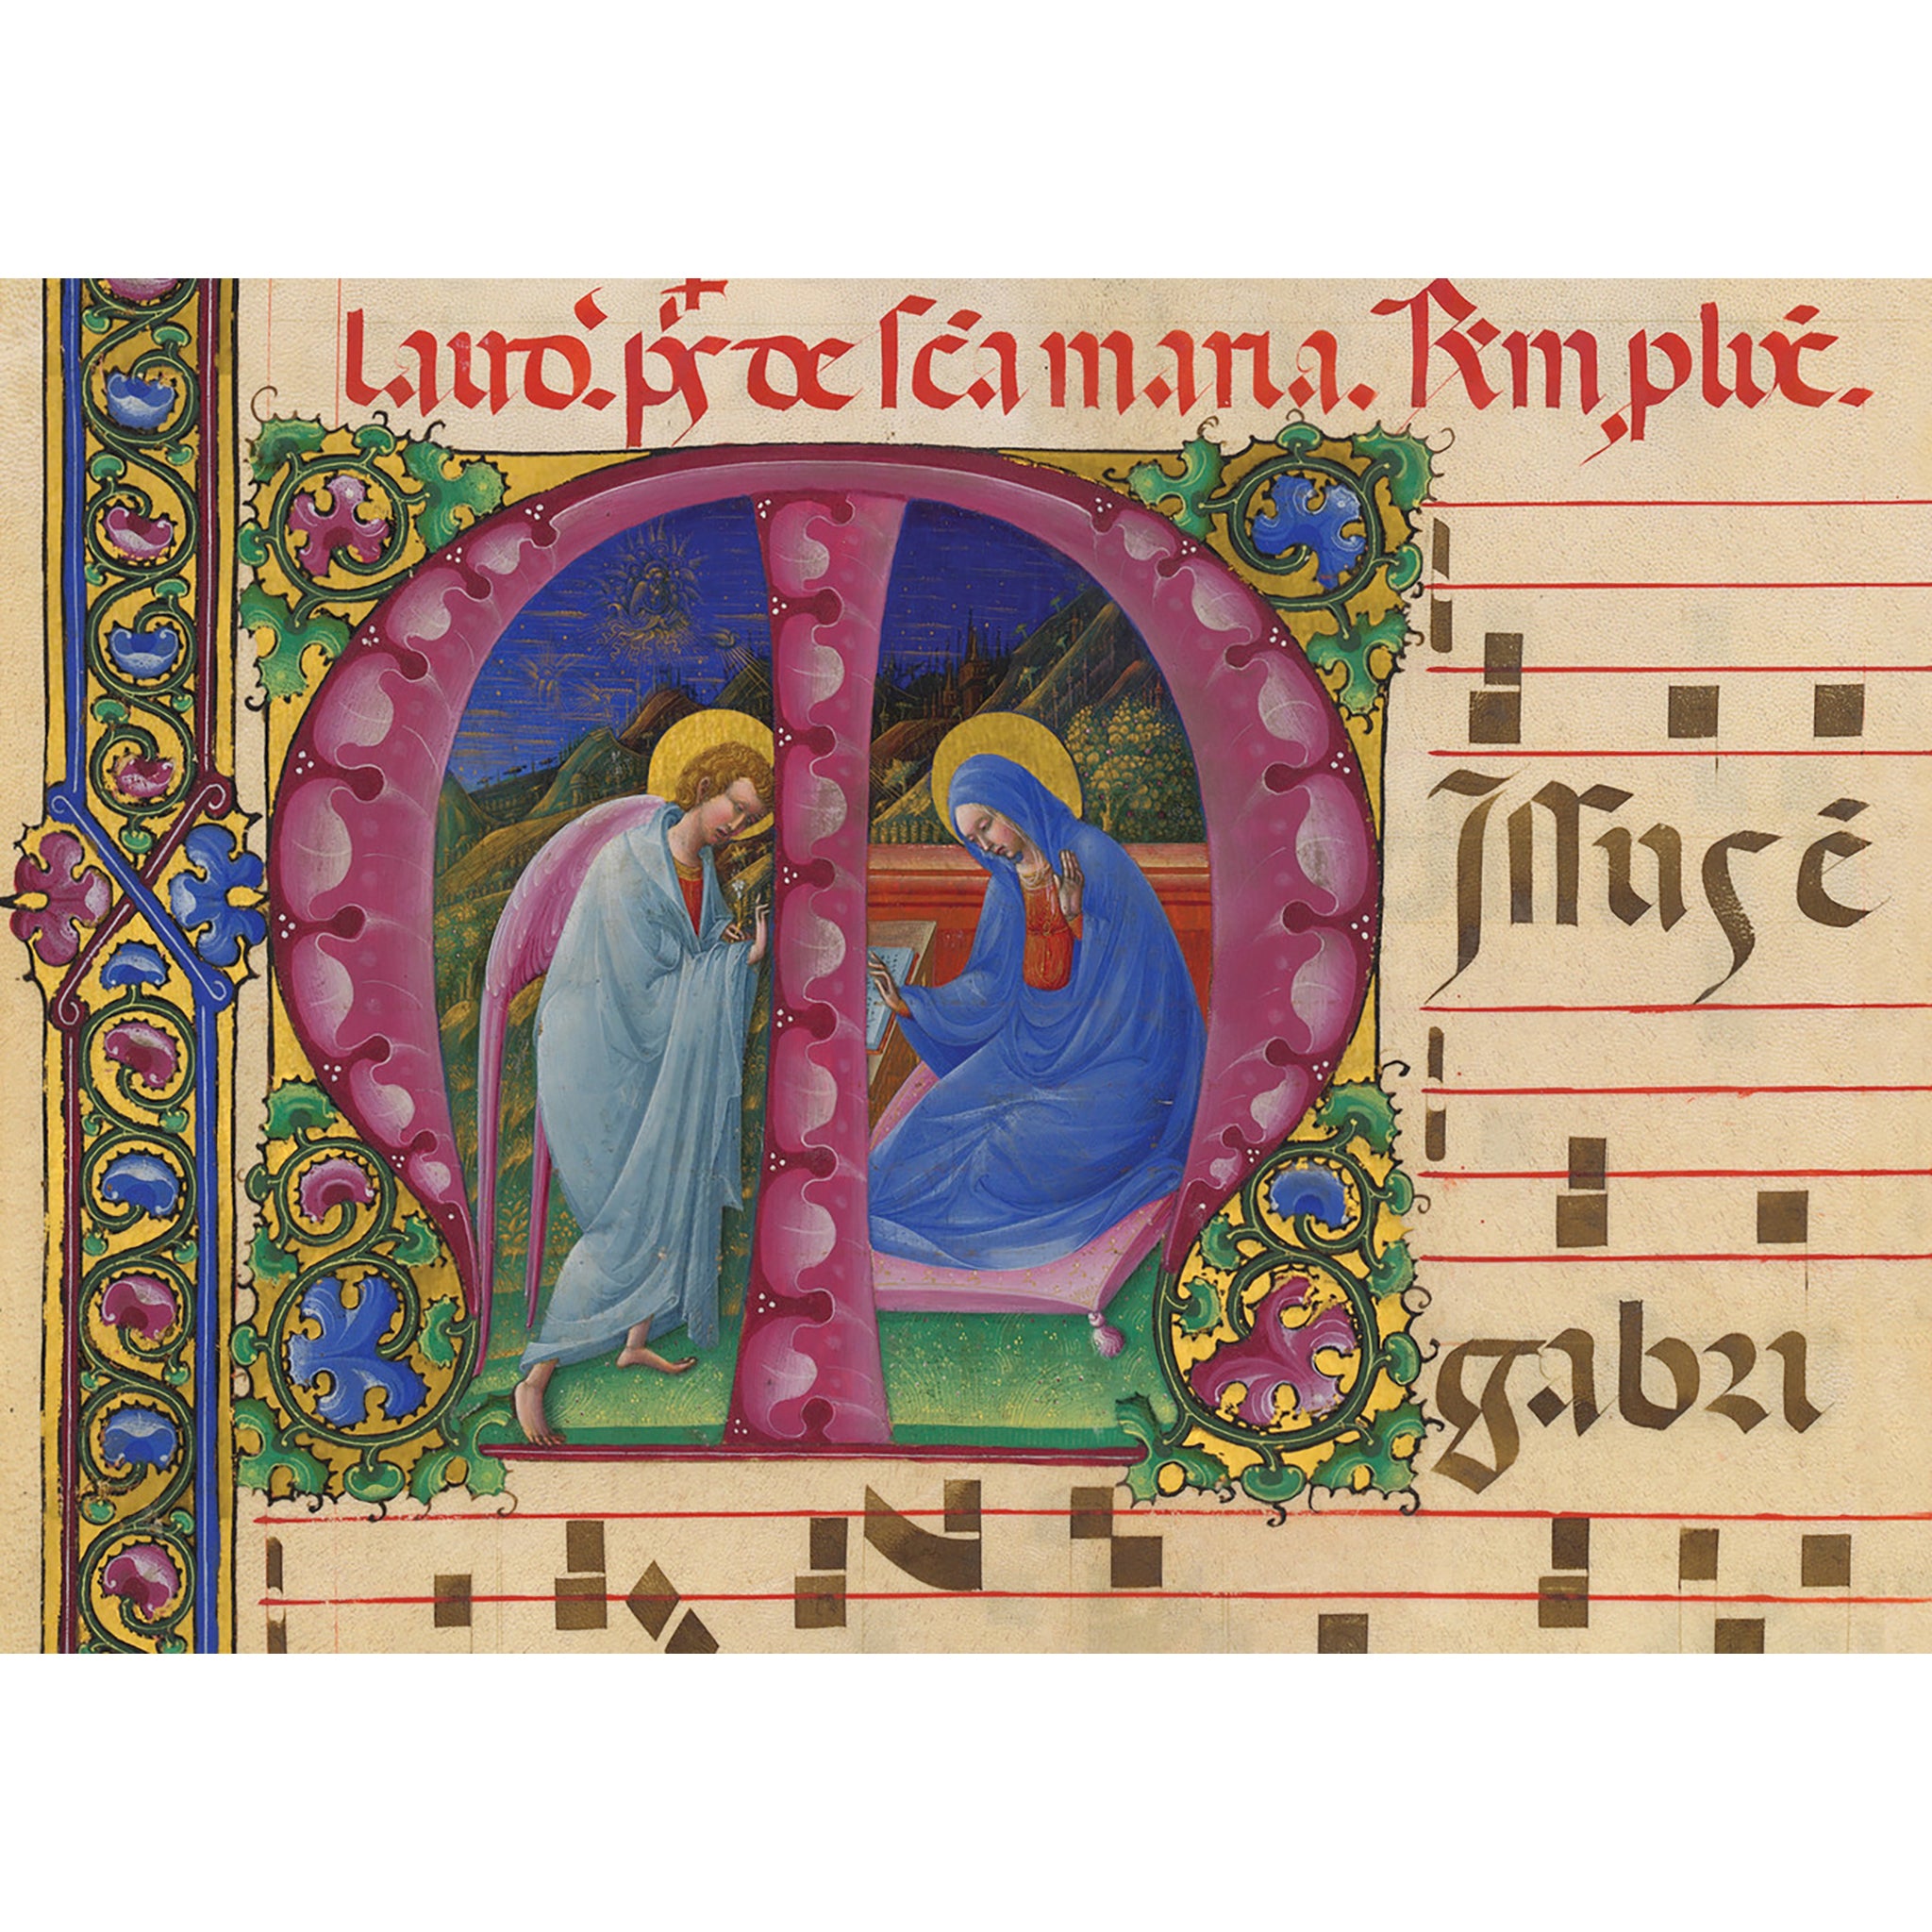 laud. ps de sca maria. Rm pluc.
M
issus e
gabri